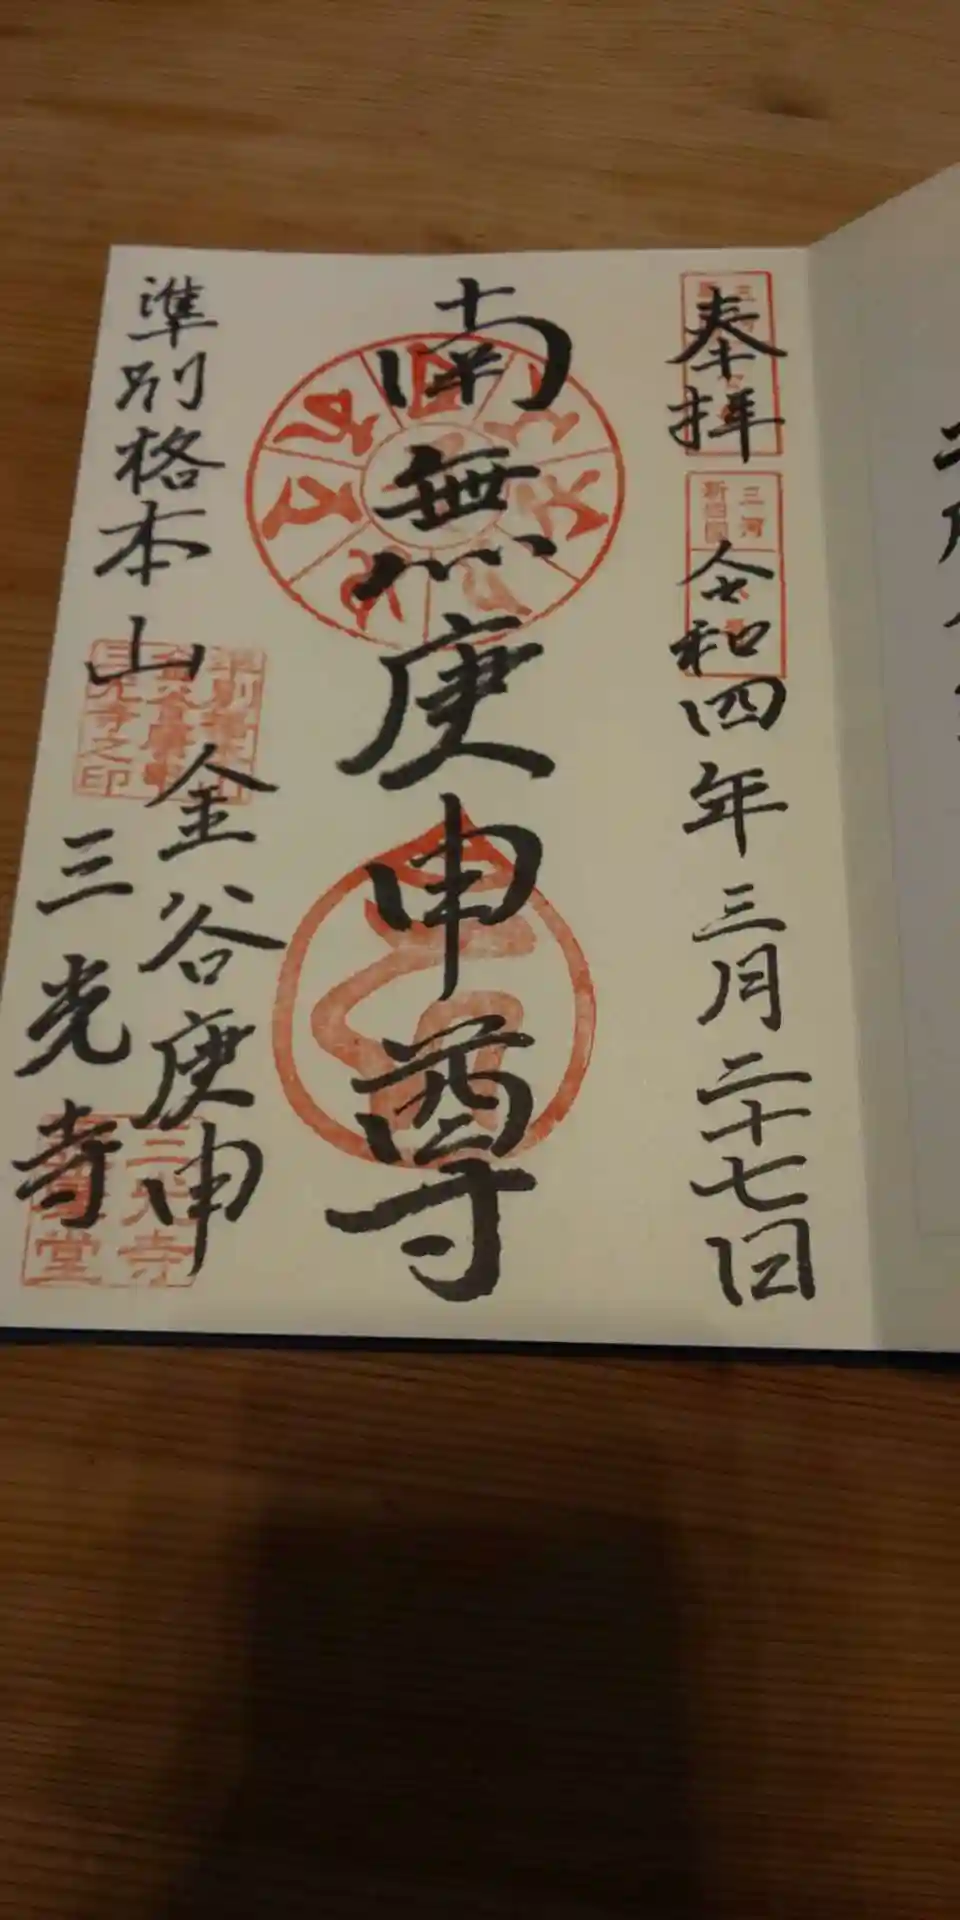 奉拝
令和四年三月二十七日
南無庚申尊
準別格本山
金谷庚申
三光寺
三河
新四国
三光寺之印
三光寺
堂